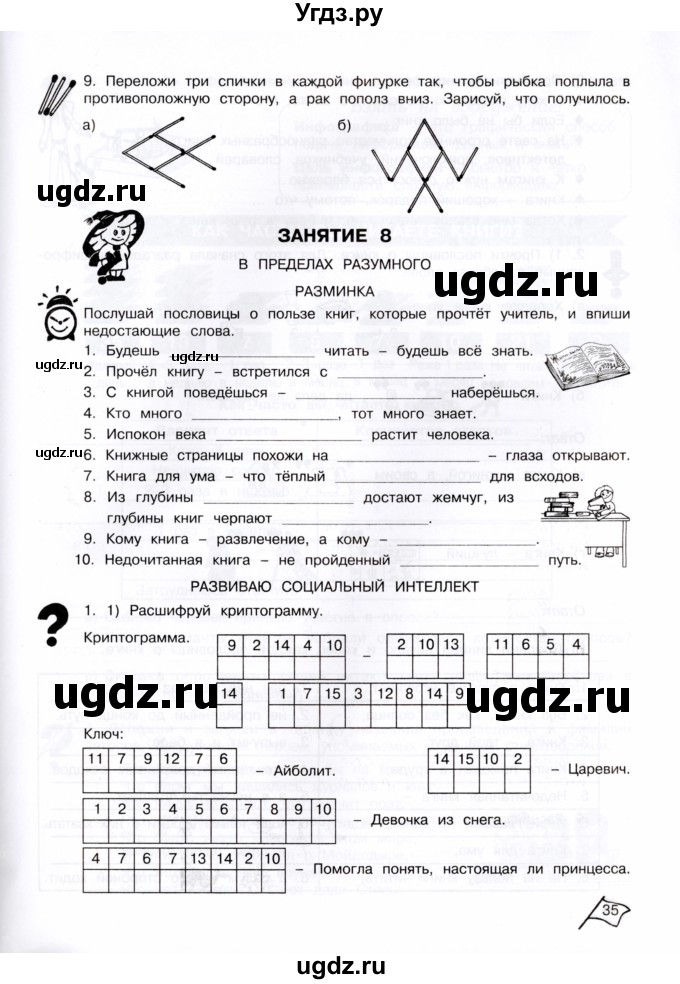 Угдз.ру
9. Переложи три спички в каждой фигурке так, чтобы рыбка поплыла в
противоположную сторону, а рак пополз вниз. Зарисуй, что получилось.
а) б)
ugdz.ru
ugdz.ru
ЗАНЯТИЕ 8
В ПРЕДЕЛАХ РАЗУМНОГО
РАЗМИНКА
ugdz.ru
Послушай пословицы о пользе книг, которые прочтёт учитель, и впиши
недостающие слова.
ugdz.ru
1. Будешь ____________ читать – будешь всё знать.
ugdz.ru
2. Прочёл книгу – встретился с ____________.
3. С книгой поведёшься – ____________ наберёшься.
4. Кто много ____________, тот много знает.
5. Испокон века ____________ растит человека.
ugdz.ru
6. Книжные страницы похожи на ____________ – глаза открывают.
7. Книга для ума – что тёплый ____________ для всходов.
8. Из глубины ____________ достают жемчуг, из
глубины книг черпают ____________.
9. Кому книга – развлечение, а кому – ____________.
10. Недочитанная книга – не пройденный ____________ путь.
РАЗВИВАЮ СОЦИАЛЬНЫЙ ИНТЕЛЛЕКТ
1. 1) Расшифруй криптограмму.
Криптограмма. 9 2 14 4 10 – 2 10 13 11 6 5 4
ugdz.ru
14 1 7 15 3 12 8 14 9
ugdz.ru
Ключ:
11 7 9 12 7 6 – Айболит. 14 15 10 2 – Царевич.
1 2 3 4 5 6 7 8 9 10 – Девочка из снега.
4 7 6 7 13 14 2 10 – Помогла понять, настоящая ли принцесса.
35
ugdz.ru